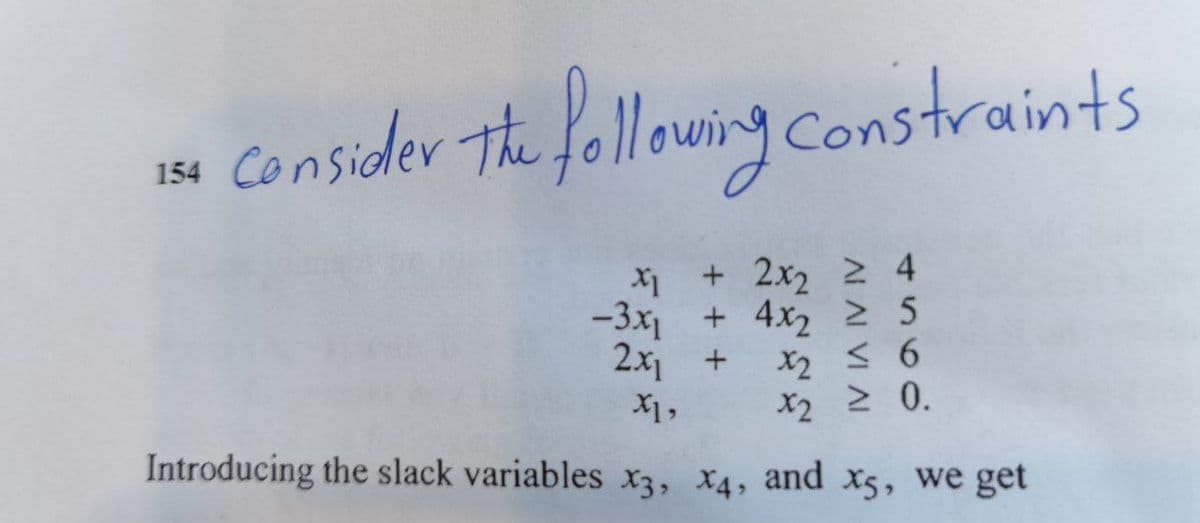 154 Consider the following constraints
x₁ + 2x₂ ≥ 4
−3x₁ + 4x₂ ≥ 5
2x₁ + x₂ ≤ 6
x₁, x₂ ≥ 0.
Introducing the slack variables x₃, x₄, and x₅, we get